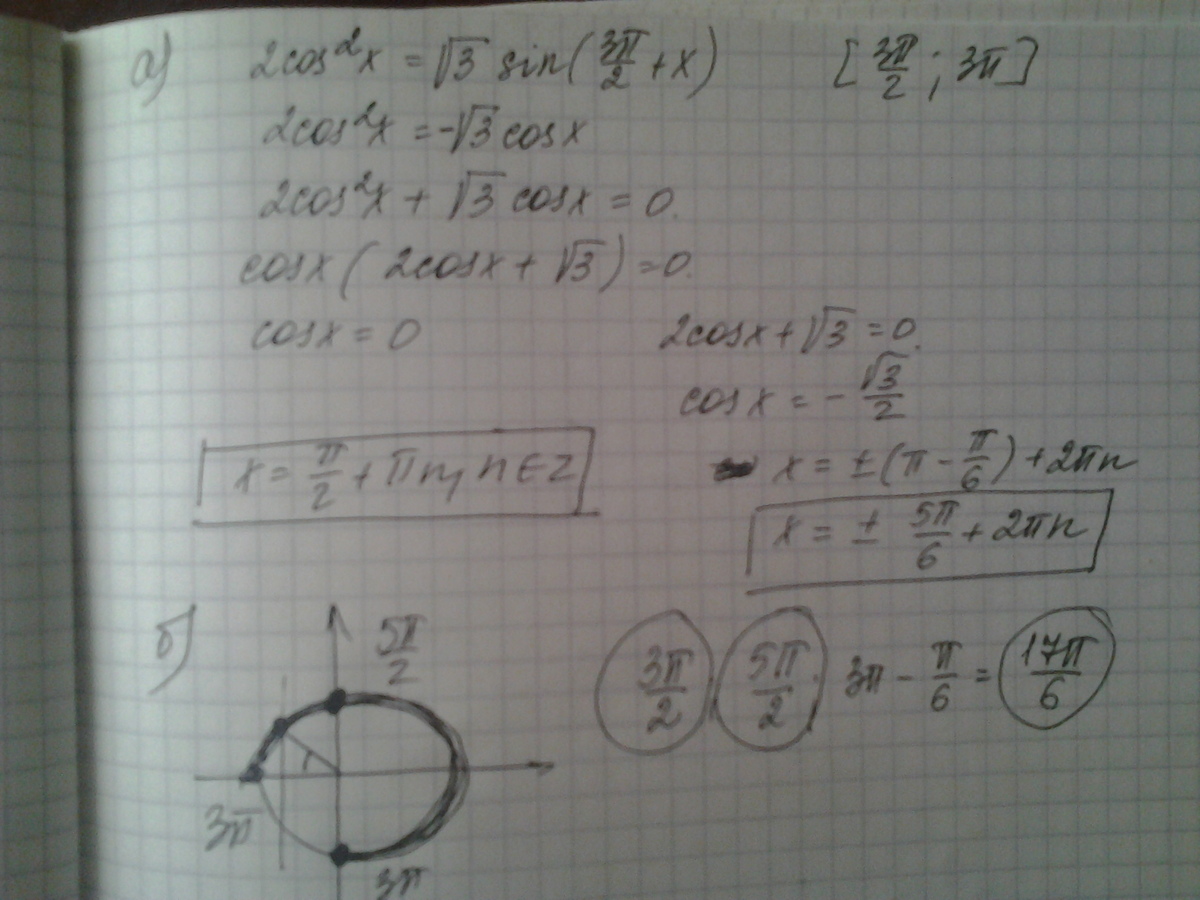 а) 2cos²x = √3 sin(3π/2 + x) [3π/2 ; 3π]
2cos²x = -√3 cosx
2cos²x + √3 cosx = 0.
cosx( 2cosx + √3 ) = 0.
cosx = 0 2cosx + √3 = 0.
cosx = - √3/2
x = ±(π - π/6) + 2πn
x = π/2 + πn, n∈Z
x = ± 5π/6 + 2πn
б) 5π/2 3π/2 5π/2 . 3π - π/6 = 17π/6
3π
3π